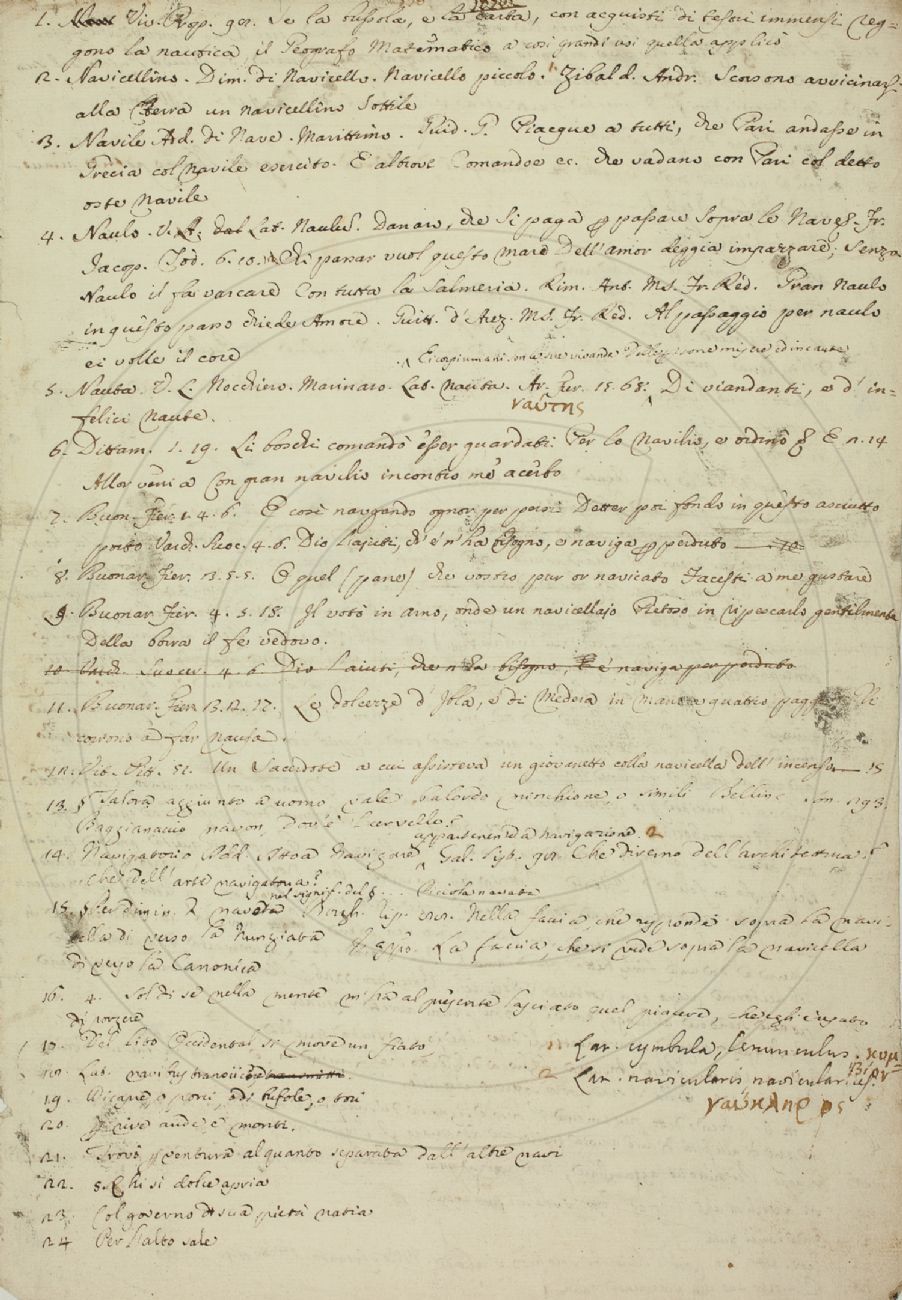 1. Viv. Prop. 90. Se la bussola, e la carta, con acquisti di tesori immensi reg=
gono la nautica il Geografo Matematico a così grandi usi quella applicò
2. Navicellino. Dim. di Navicello. Navicello piccolo. Zibald. Andr. Scorsono avvicinarsi
alla Terra un navicellino sottile
3. Navile Ad. di Nave. Marittimo. Guid. G. Piacque a tutti, che Pari andasse in
Grecia col navile esercito. E altrove Comandoe ec. che vadano con Pari col detto
oste navile
4. Naulo. V. L. Lat. Naulus. Danaro, che si paga p passare sopra le Navi. Fr.
Jacop. Tod. 6. 10. Chi passar vuol questo mare Dell'amor deggia impazzare, Senza
Naulo il fa varcare Con tutta la Salmeria. Rim. Ant. Ms. Fr. Red. Gran Naulo
in questo passo chiede Amore. Guitt. d'Arez. Ms. Fr. Red. Al passaggio per naulo
ei volle il core
5. Nauta. V. L. Nocchiero. Marinaro. Lat. nauta. Ar. Fur. 15. 65. Di viandanti, e d' in=
ναύτης
felici naute.
6. Dittam. 1. 19. Li boschi comandò esser guardati Per lo navilio, e ordinò E 2. 14
Allor venia Con gran navilio incontro me acerbo
7. Buon. Fier. 1. 4. 6. E così navigando ognor per porsi Detter poi fondo in questo asciutto
porto Varch. Suoc. 4. 6. Dio l'aiuti, ch' e' n'ha bisogno, e naviga p perduto
8. Buonar. Fier. 3. 5. 5. E quel (pane) che vostro pur or navicato Facesti a me gustare
9. Buonar. Fier. 4. 5. 18. Il votò in Arno, onde un navicellajo Pietoso in ripescarlo gentilmente
Della borsa il fe vedovo.
10. Varch. Suocer. 4. 6. Dio l'aiuti, che n'ha bisogno, e naviga per perduto
11. Buonar. Fier. 3. 12. Le dolcezze d' Iola, e di Medea in mano a quattro paggi
corrono a far nausea.
12. Vit. Pitt. 51. Un Sacerdote a cui assisteva un giovanetto colla navicella dell'incenso 15
13. § Talora aggiunto a uomo vale balordo minchione, o simili Bellinc. son. 293.
Baggianaccio navon, Dov'è 'l cervello?
appartenente a navigazione. 2
14. Navigatorio Add. Atto a Navigare Gal. Sist. Che diremo dell'architettura?
che dell'arte navigatoria?
nel signif. del §. ... Picciola navata
15. § Per dimin. di navata Borgh. Rip. Nella faccia che risponde sopra la navi-
cella di verso la Nunziata La faccia, che si vede sopra la navicella
di verso la Canonica
16. 4. Soldi se nella mente m'ha al presente lasciato quel piacere, che egli è usato
di porgere
17. Del lito Occidental si move un fiato
18. Lat. navi
19. Vicane, o porci, e di bufole, o tori
20. p rive aude, e monti.
21. Trovò p ventura alquanto separata dall'altre navi
22. s. Chi si dolce apria
23. Col governo di sua pietà natia
24 Per l'alto sale
Lat. cymbula, lenunculus. κυμ
βίον
2 Lat. navicularis navicularius.
ναύκληρος